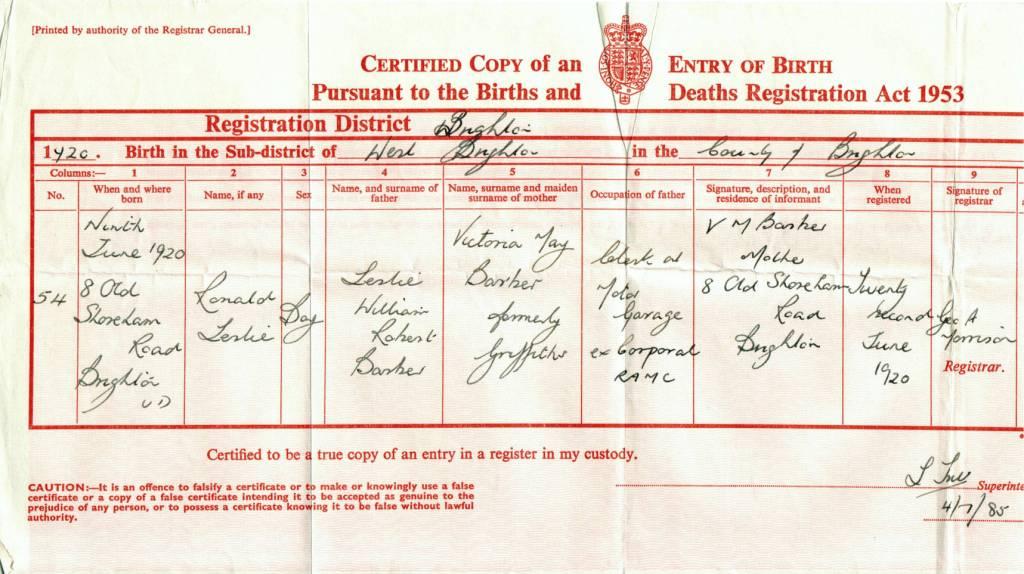 [Printed by authority of the Registrar General.]
CERTIFIED COPY of an ENTRY OF BIRTH
Pursuant to the Births and Deaths Registration Act 1953
Registration District Brighton
1920. Birth in the Sub-district of West Brighton in the County of Brighton
Columns:— 1 2 3 4 5 6 7 8 9
No. When and where born Name, if any Sex Name, and surname of father Name, surname and maiden surname of mother Occupation of father Signature, description, and residence of informant When registered Signature of registrar
54
Ninth
June 1920
8 Old
Shoreham
Road
Brighton
UD
Ronald
Leslie
Boy
Leslie
William
Robert
Barker
Victoria May
Barker
formerly
Griffiths
Clerk at
Motor
Garage
ex Corporal
RAMC
V M Barker
Mother
8 Old Shoreham
Road
Brighton
Twenty
second
June
1920
Geo A
Morrison
Registrar.
Certified to be a true copy of an entry in a register in my custody.
CAUTION:—It is an offence to falsify a certificate or to make or knowingly use a false
certificate or a copy of a false certificate intending it to be accepted as genuine to the
prejudice of any person, or to possess a certificate knowing it to be false without lawful
authority.
Superinte
4/7/85